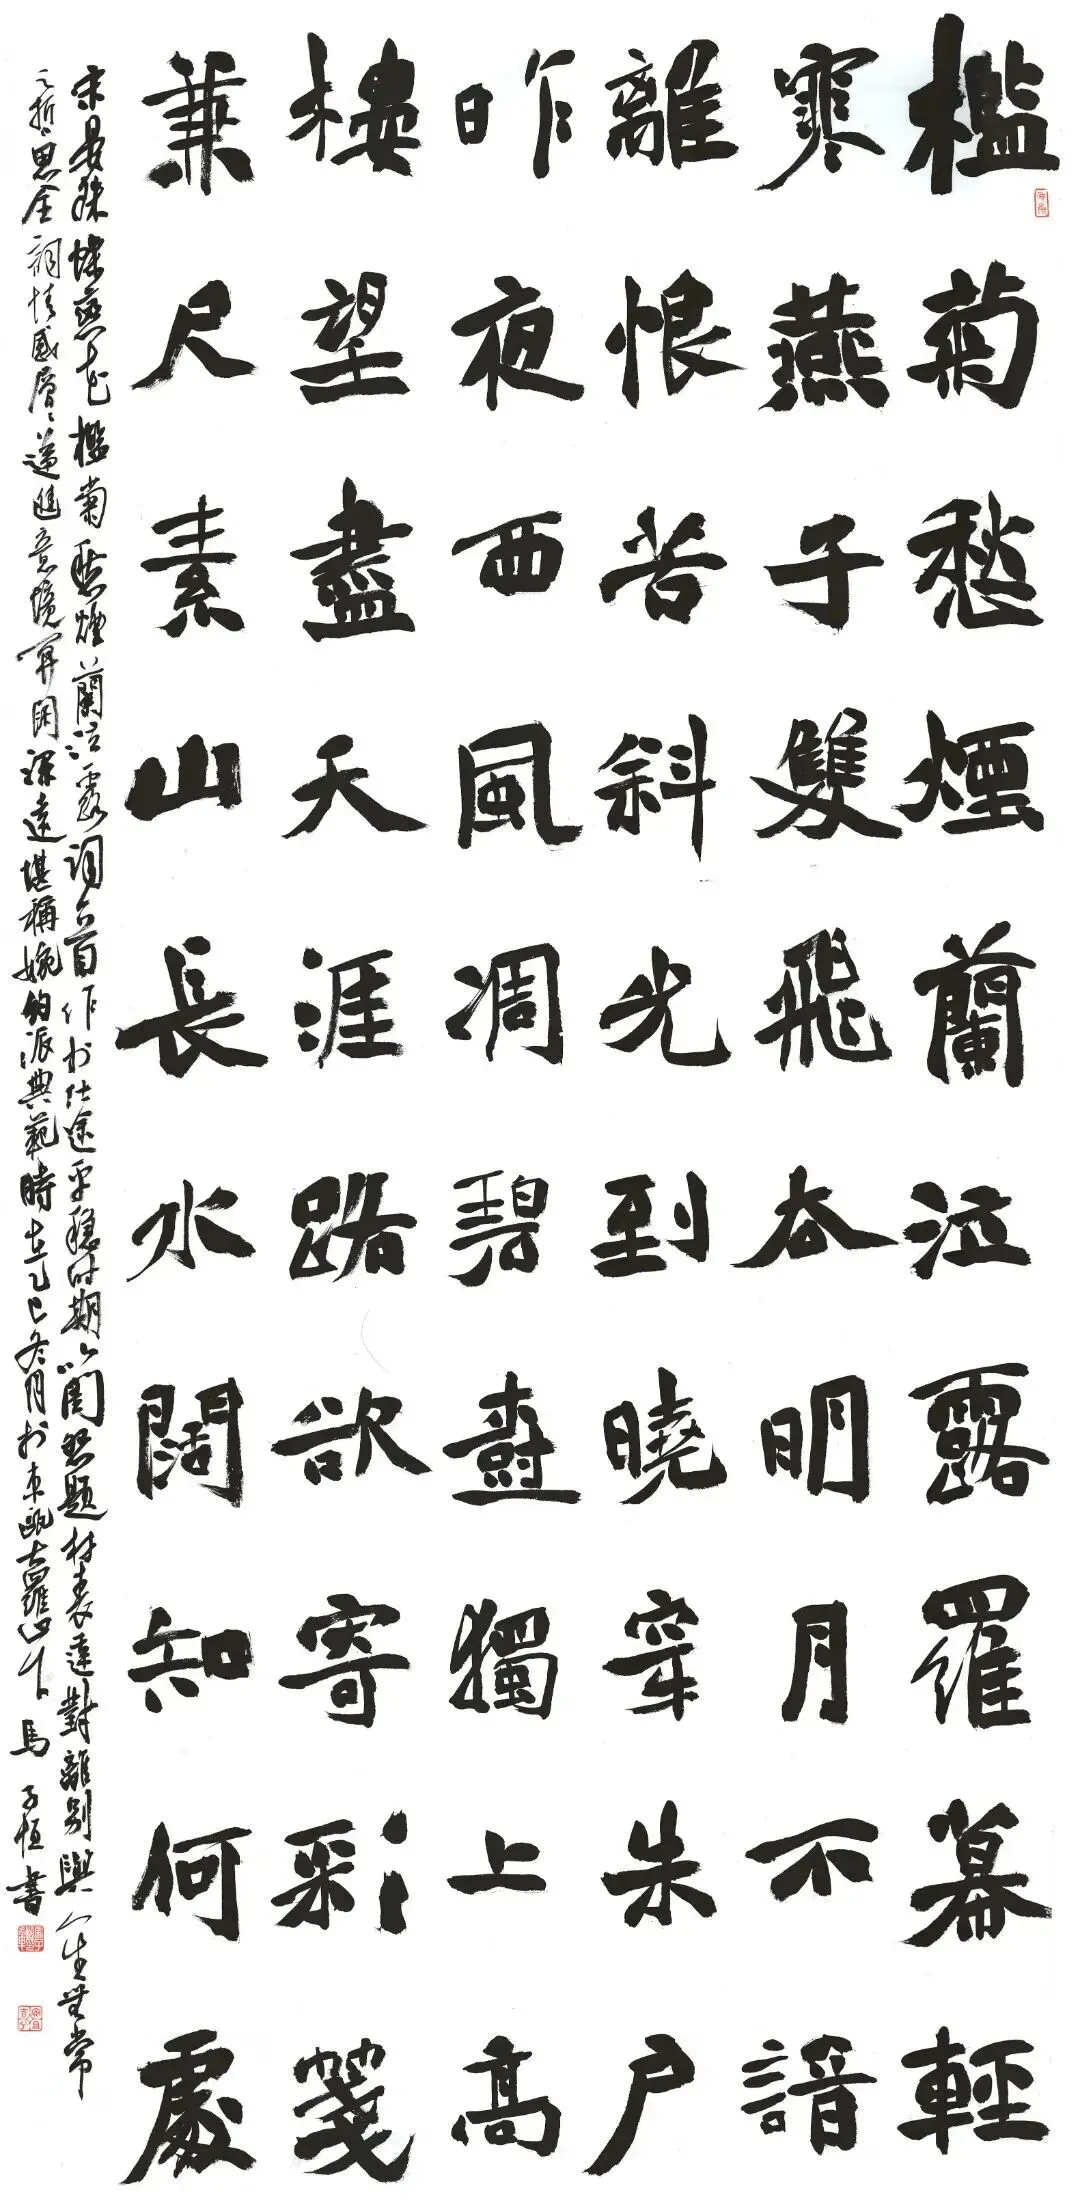 檻菊愁煙蘭泣露羅幕輕
寒燕子雙飛去明月不諳
離恨苦斜光到曉穿朱戶
昨夜西風凋碧樹獨上高
樓望盡天涯路欲寄彩箋
兼尺素山長水闊知何處
宋晏殊蝶戀花檻菊愁煙蘭泣露詞首作於仕途平穩時期以閨怨題材表達對離別與人生無常
之哲思全詞情感層層遞進意境開闊深遠堪稱婉約派典範時在乙巳冬月於東甌大羅山下馬子恒書